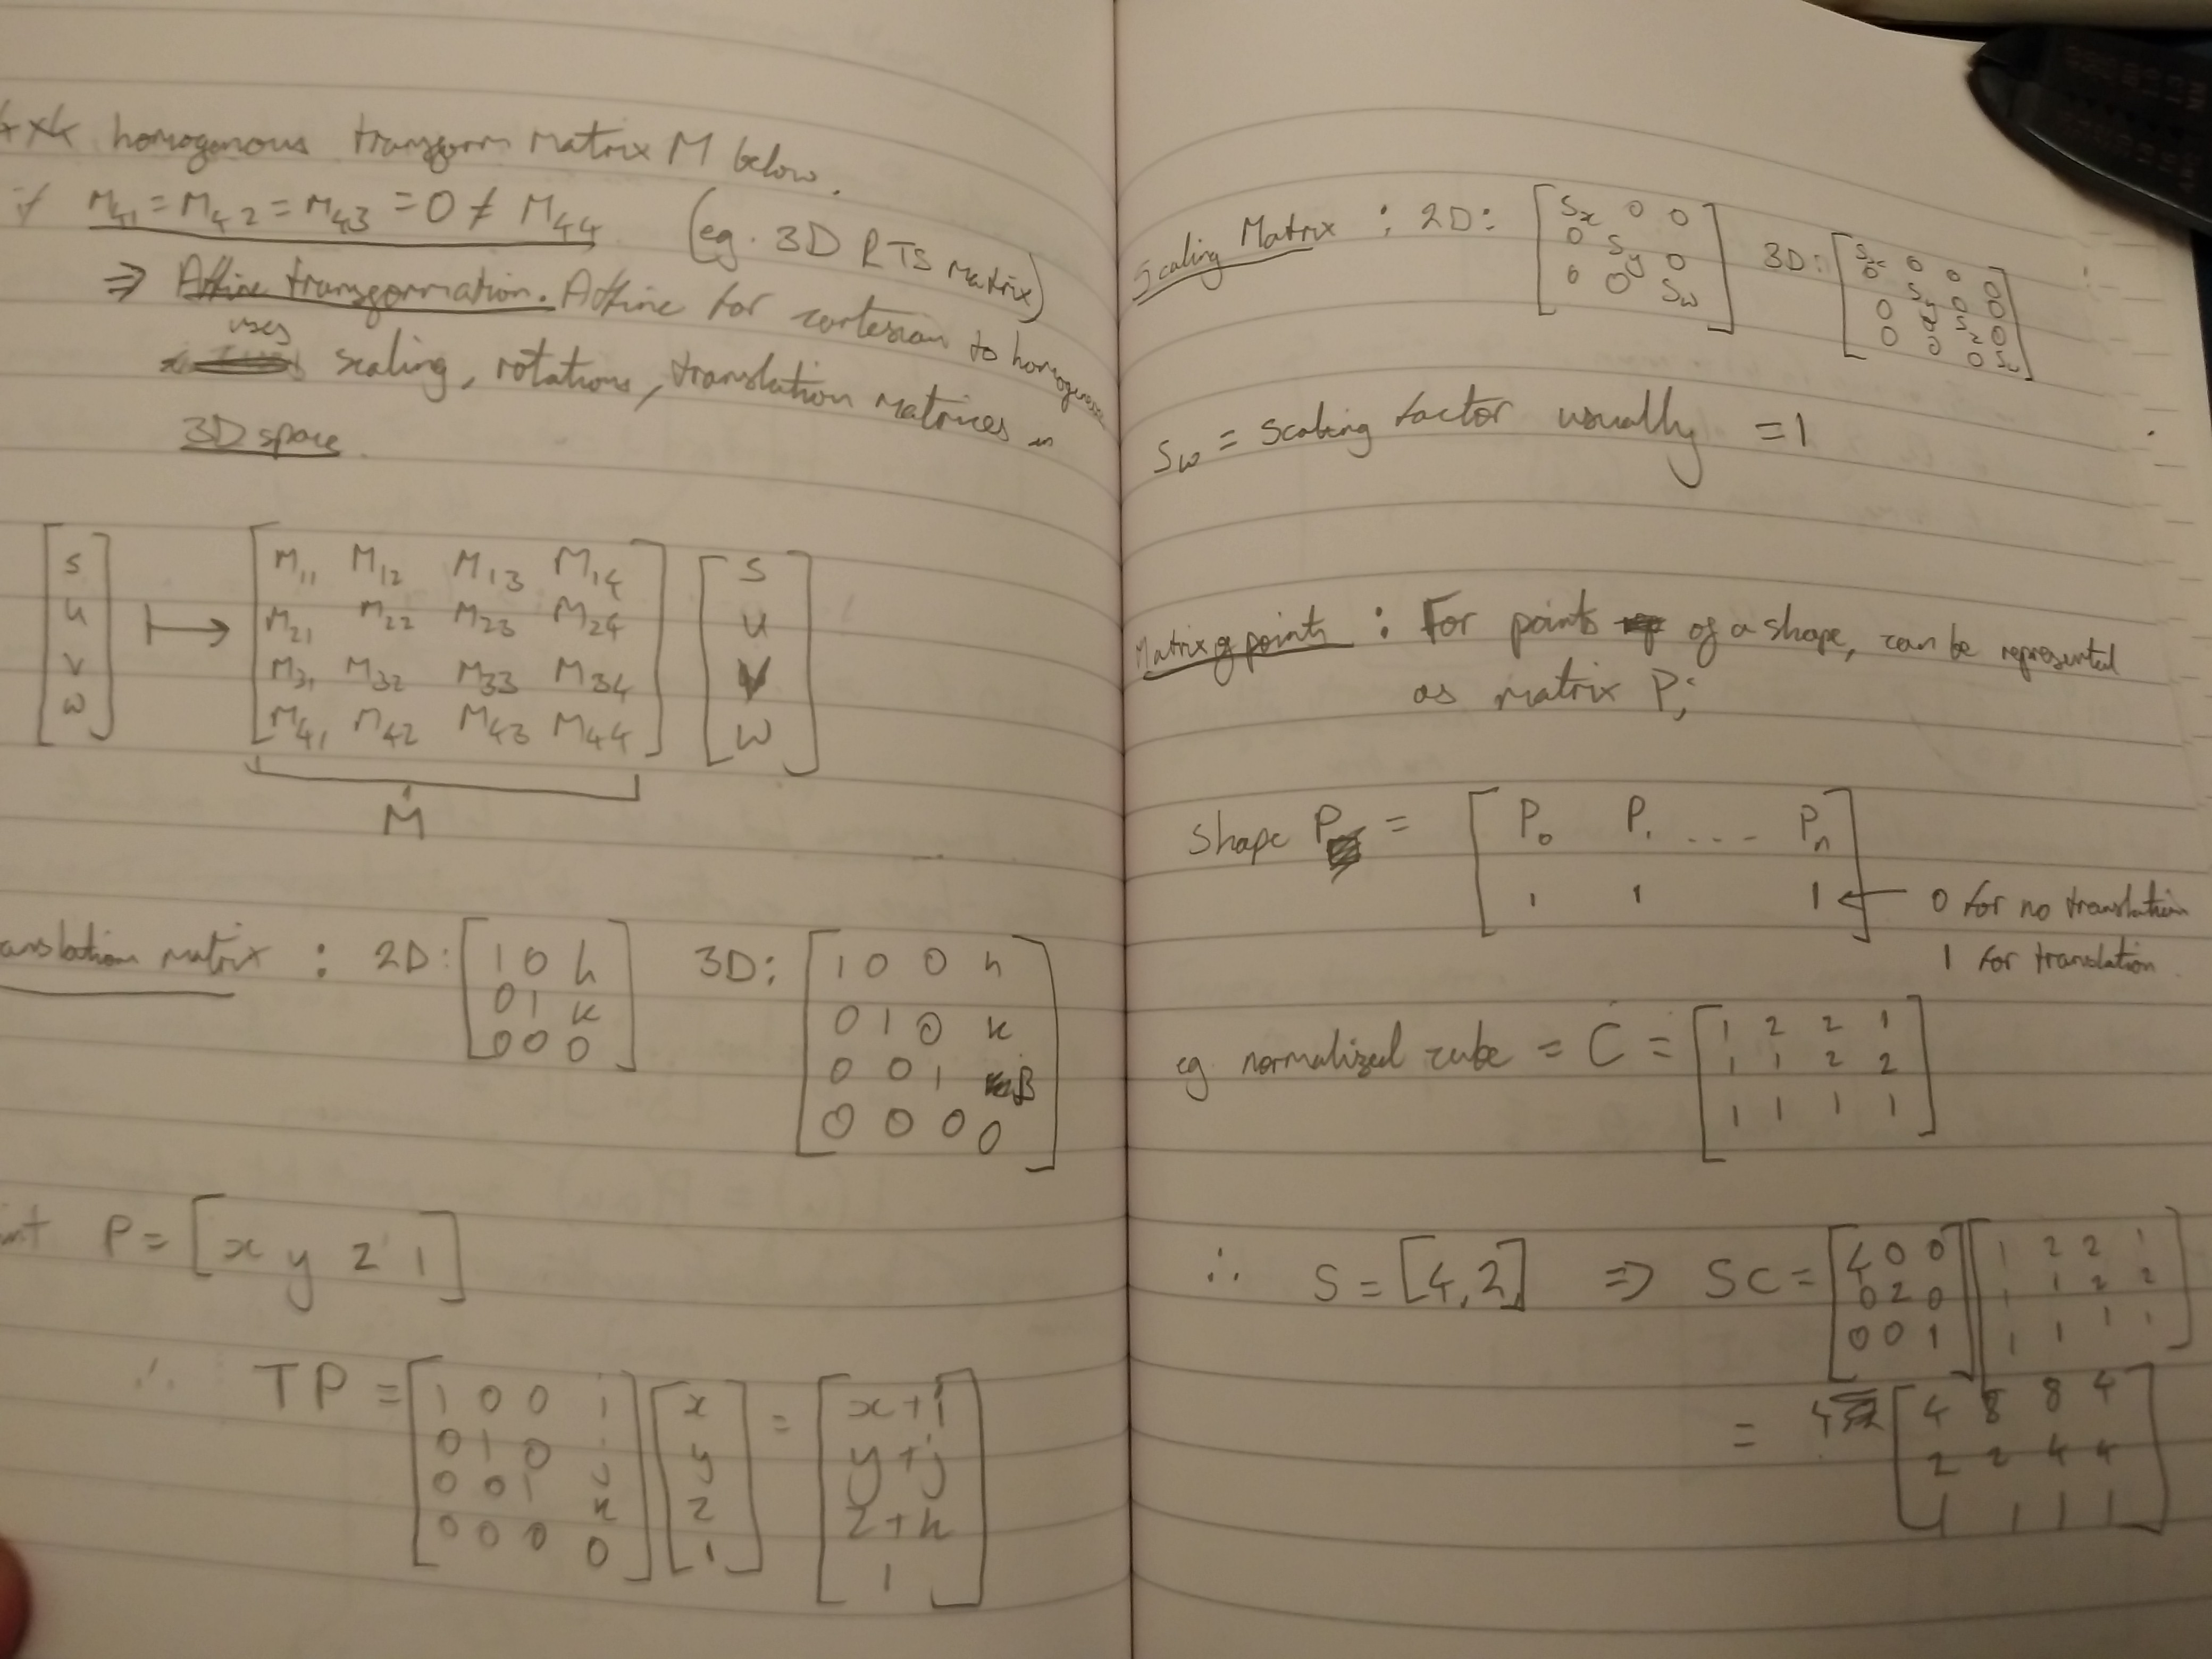 4x4 homogenous transform matrix M below.
if M41 = M42 = M43 = 0 ≠ M44 (eg. 3D RTS matrix)
⇒ Affine transformation. Affine for cartesian to homogenous
uses
scaling, rotations, translation matrices in
3D space.
[s u v w] ↦ [M11 M12 M13 M14
M21 M22 M23 M24
M31 M32 M33 M34
M41 M42 M43 M44] [s u v w]
M
anslation matrix : 2D: [1 0 h
0 1 k
0 0 0] 3D: [1 0 0 h
0 1 0 k
0 0 1 β
0 0 0 0]
int P = [x y z 1]
∴ TP = [1 0 0 i
0 1 0 j
0 0 1 k
0 0 0 0] [x y z 1] = [x+i
y+j
z+k
1]
Scaling Matrix : 2D: [Sx 0 0
0 Sy 0
0 0 Sw] 3D: [Sx 0 0 0
0 Sy 0 0
0 0 Sz 0
0 0 0 Sw]
Sw = scaling factor usually = 1
Matrix of points : For points of a shape, can be represented
as matrix P;
Shape P = [P0 P1 .... Pn
1 1 1] ← 0 for no translation
1 for translation.
eg normalized cube = C = [1 2 2 1
1 1 2 2
1 1 1 1]
∴ S = [4,2] ⇒ SC = [4 0 0
0 2 0
0 0 1] [1 2 2 1
1 1 2 2
1 1 1 1]
= 4 [4 8 8 4
2 2 4 4
1 1 1 1]